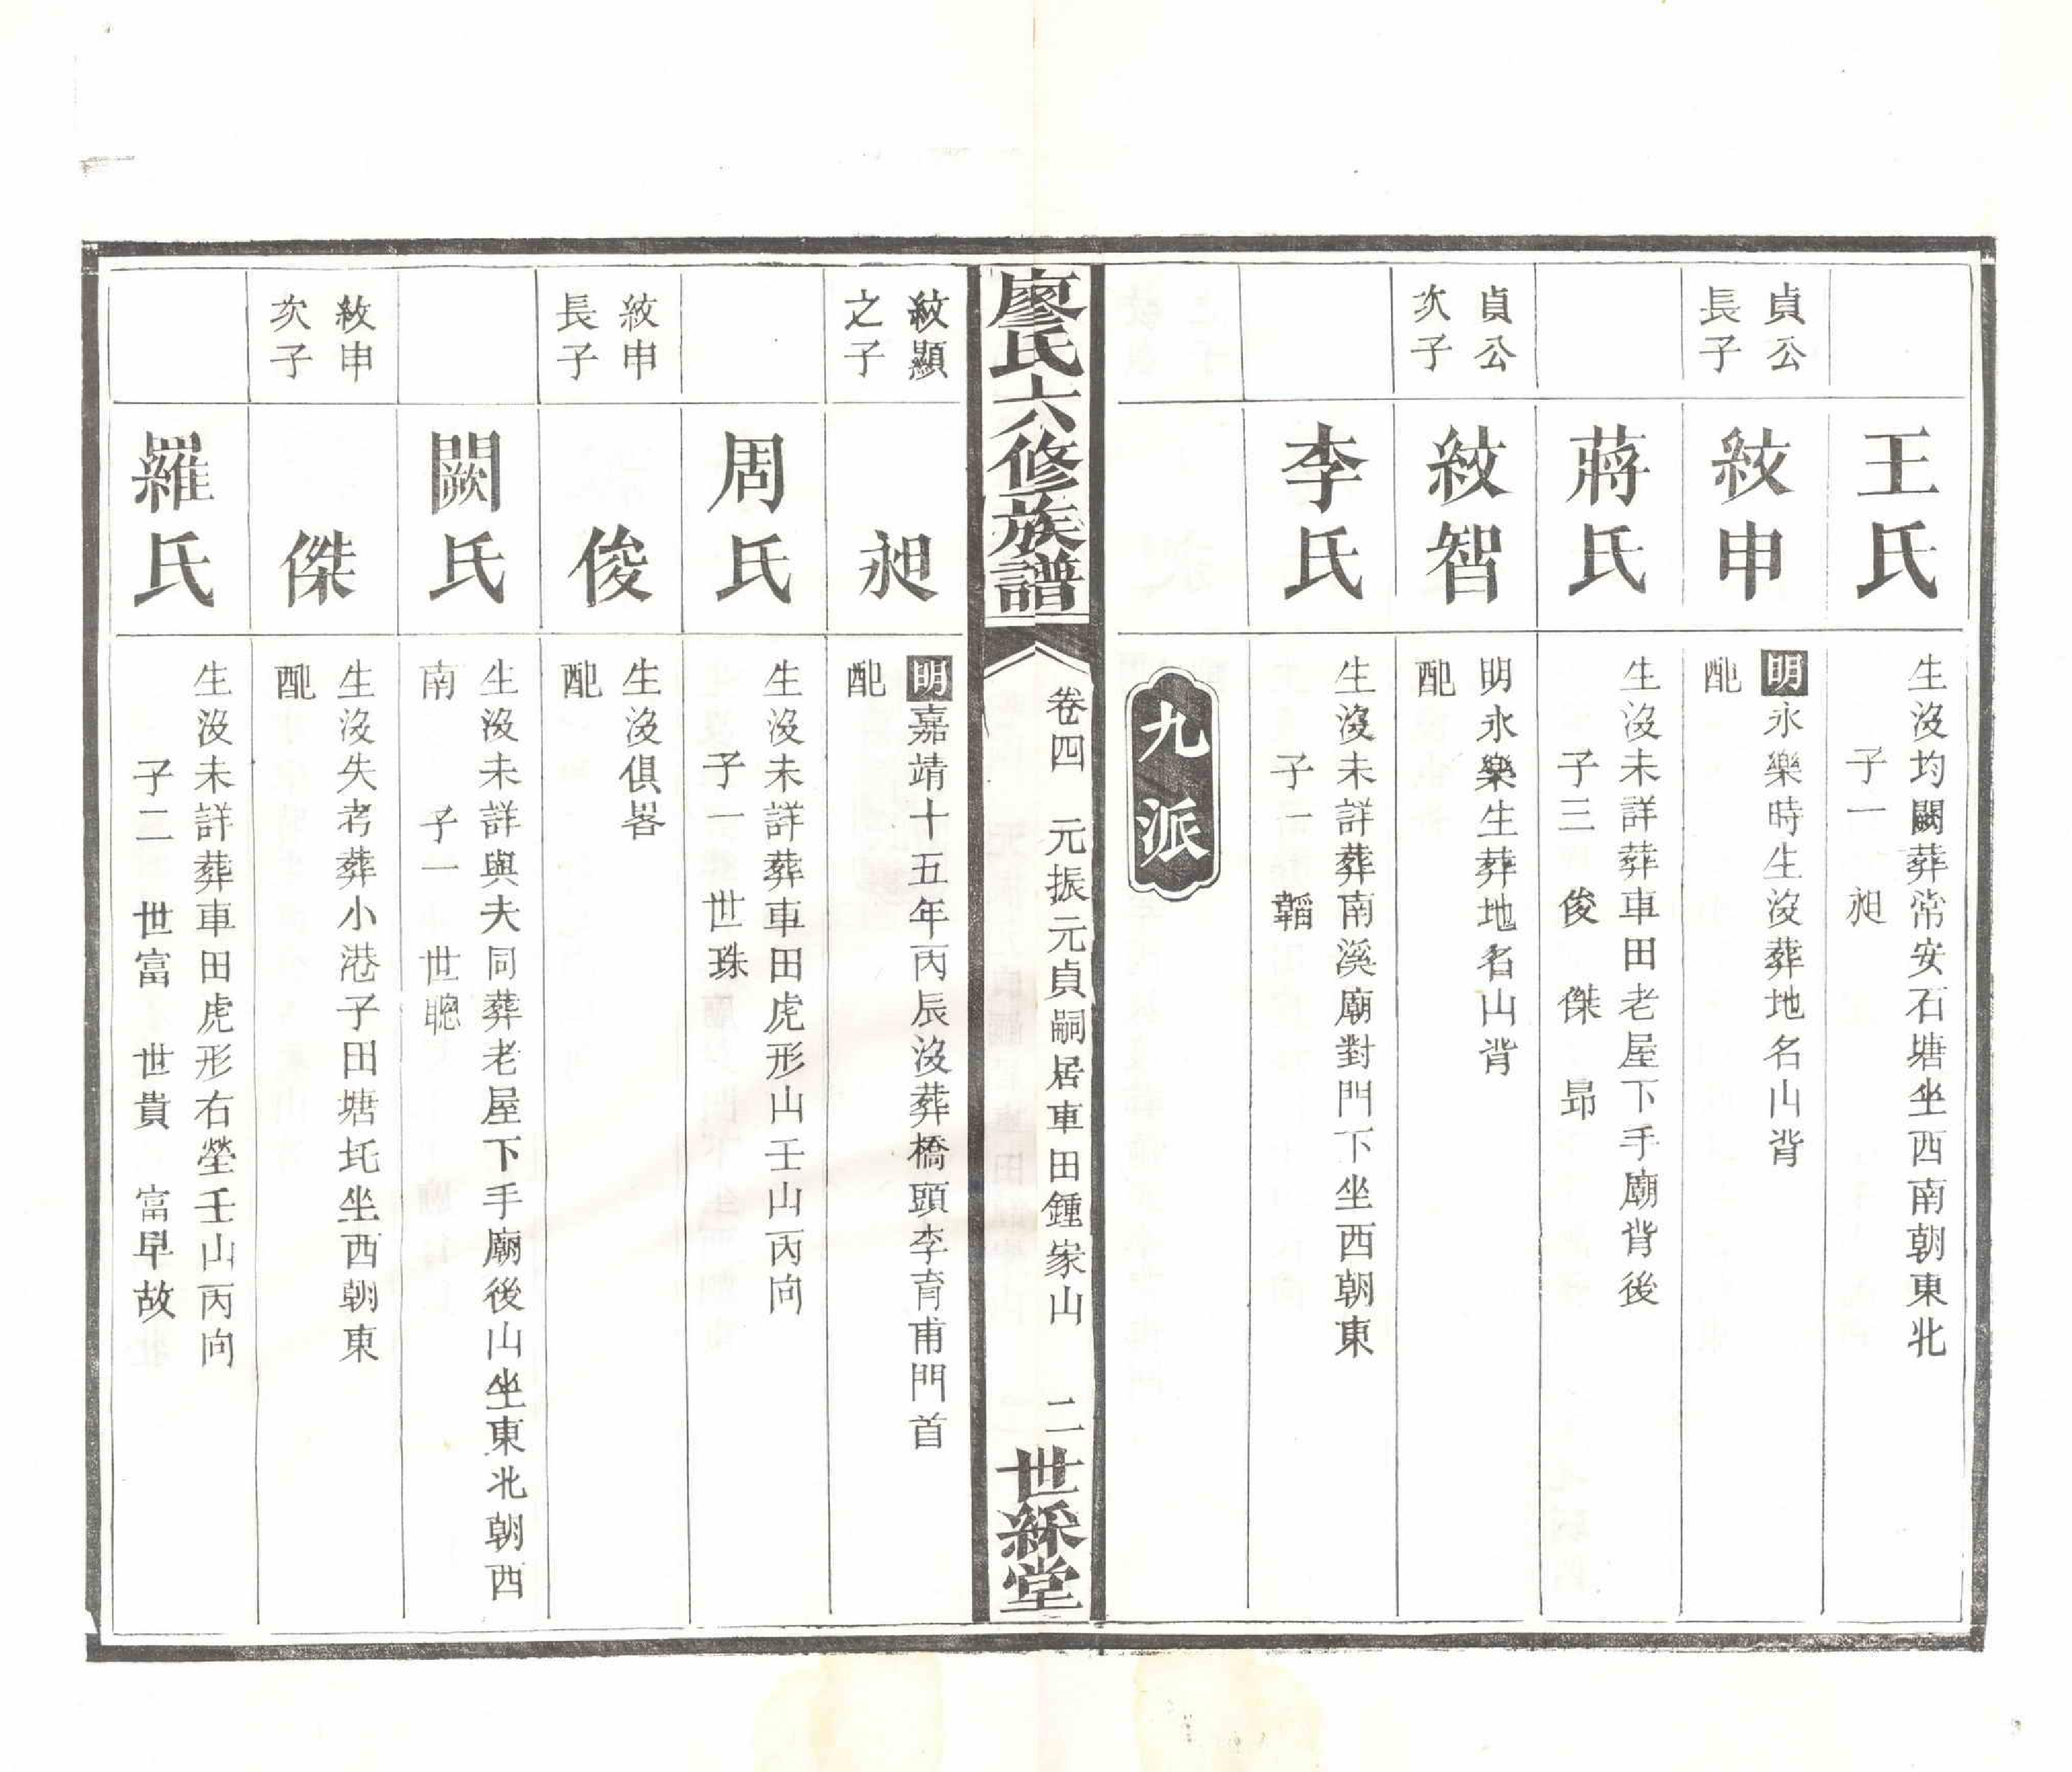 王氏
生沒均闕葬常安石塘坐西南朝東北
子一　昶
貞公
長子
紋申
明永樂時生沒葬地名山背
配
蔣氏
生沒未詳葬車田老屋下手廟背後
子三　俊　傑　昻
貞公
次子
紋智
明永樂生葬地名山背
配
李氏
生沒未詳葬南溪廟對門下坐西朝東
子一　韜
九派
廖氏六修族譜
卷四　元振元貞嗣居車田鍾家山　二
世綵堂
紋顯
之子
昶
明嘉靖十五年丙辰沒葬橋頭李育甫門首
配
周氏
生沒未詳葬車田虎形山壬山丙向
子一　世珠
紋申
長子
俊
生沒俱畧
配
闕氏
生沒未詳與夫同葬老屋下手廟後山坐東北朝西
南　子一　世聰
紋申
次子
傑
生沒失考葬小港子田塘坉坐西朝東
配
羅氏
生沒未詳葬車田虎形右塋壬山丙向
子二　世富　世貴　富早故